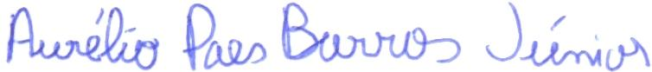 Aurélio Paes Barros Júnior